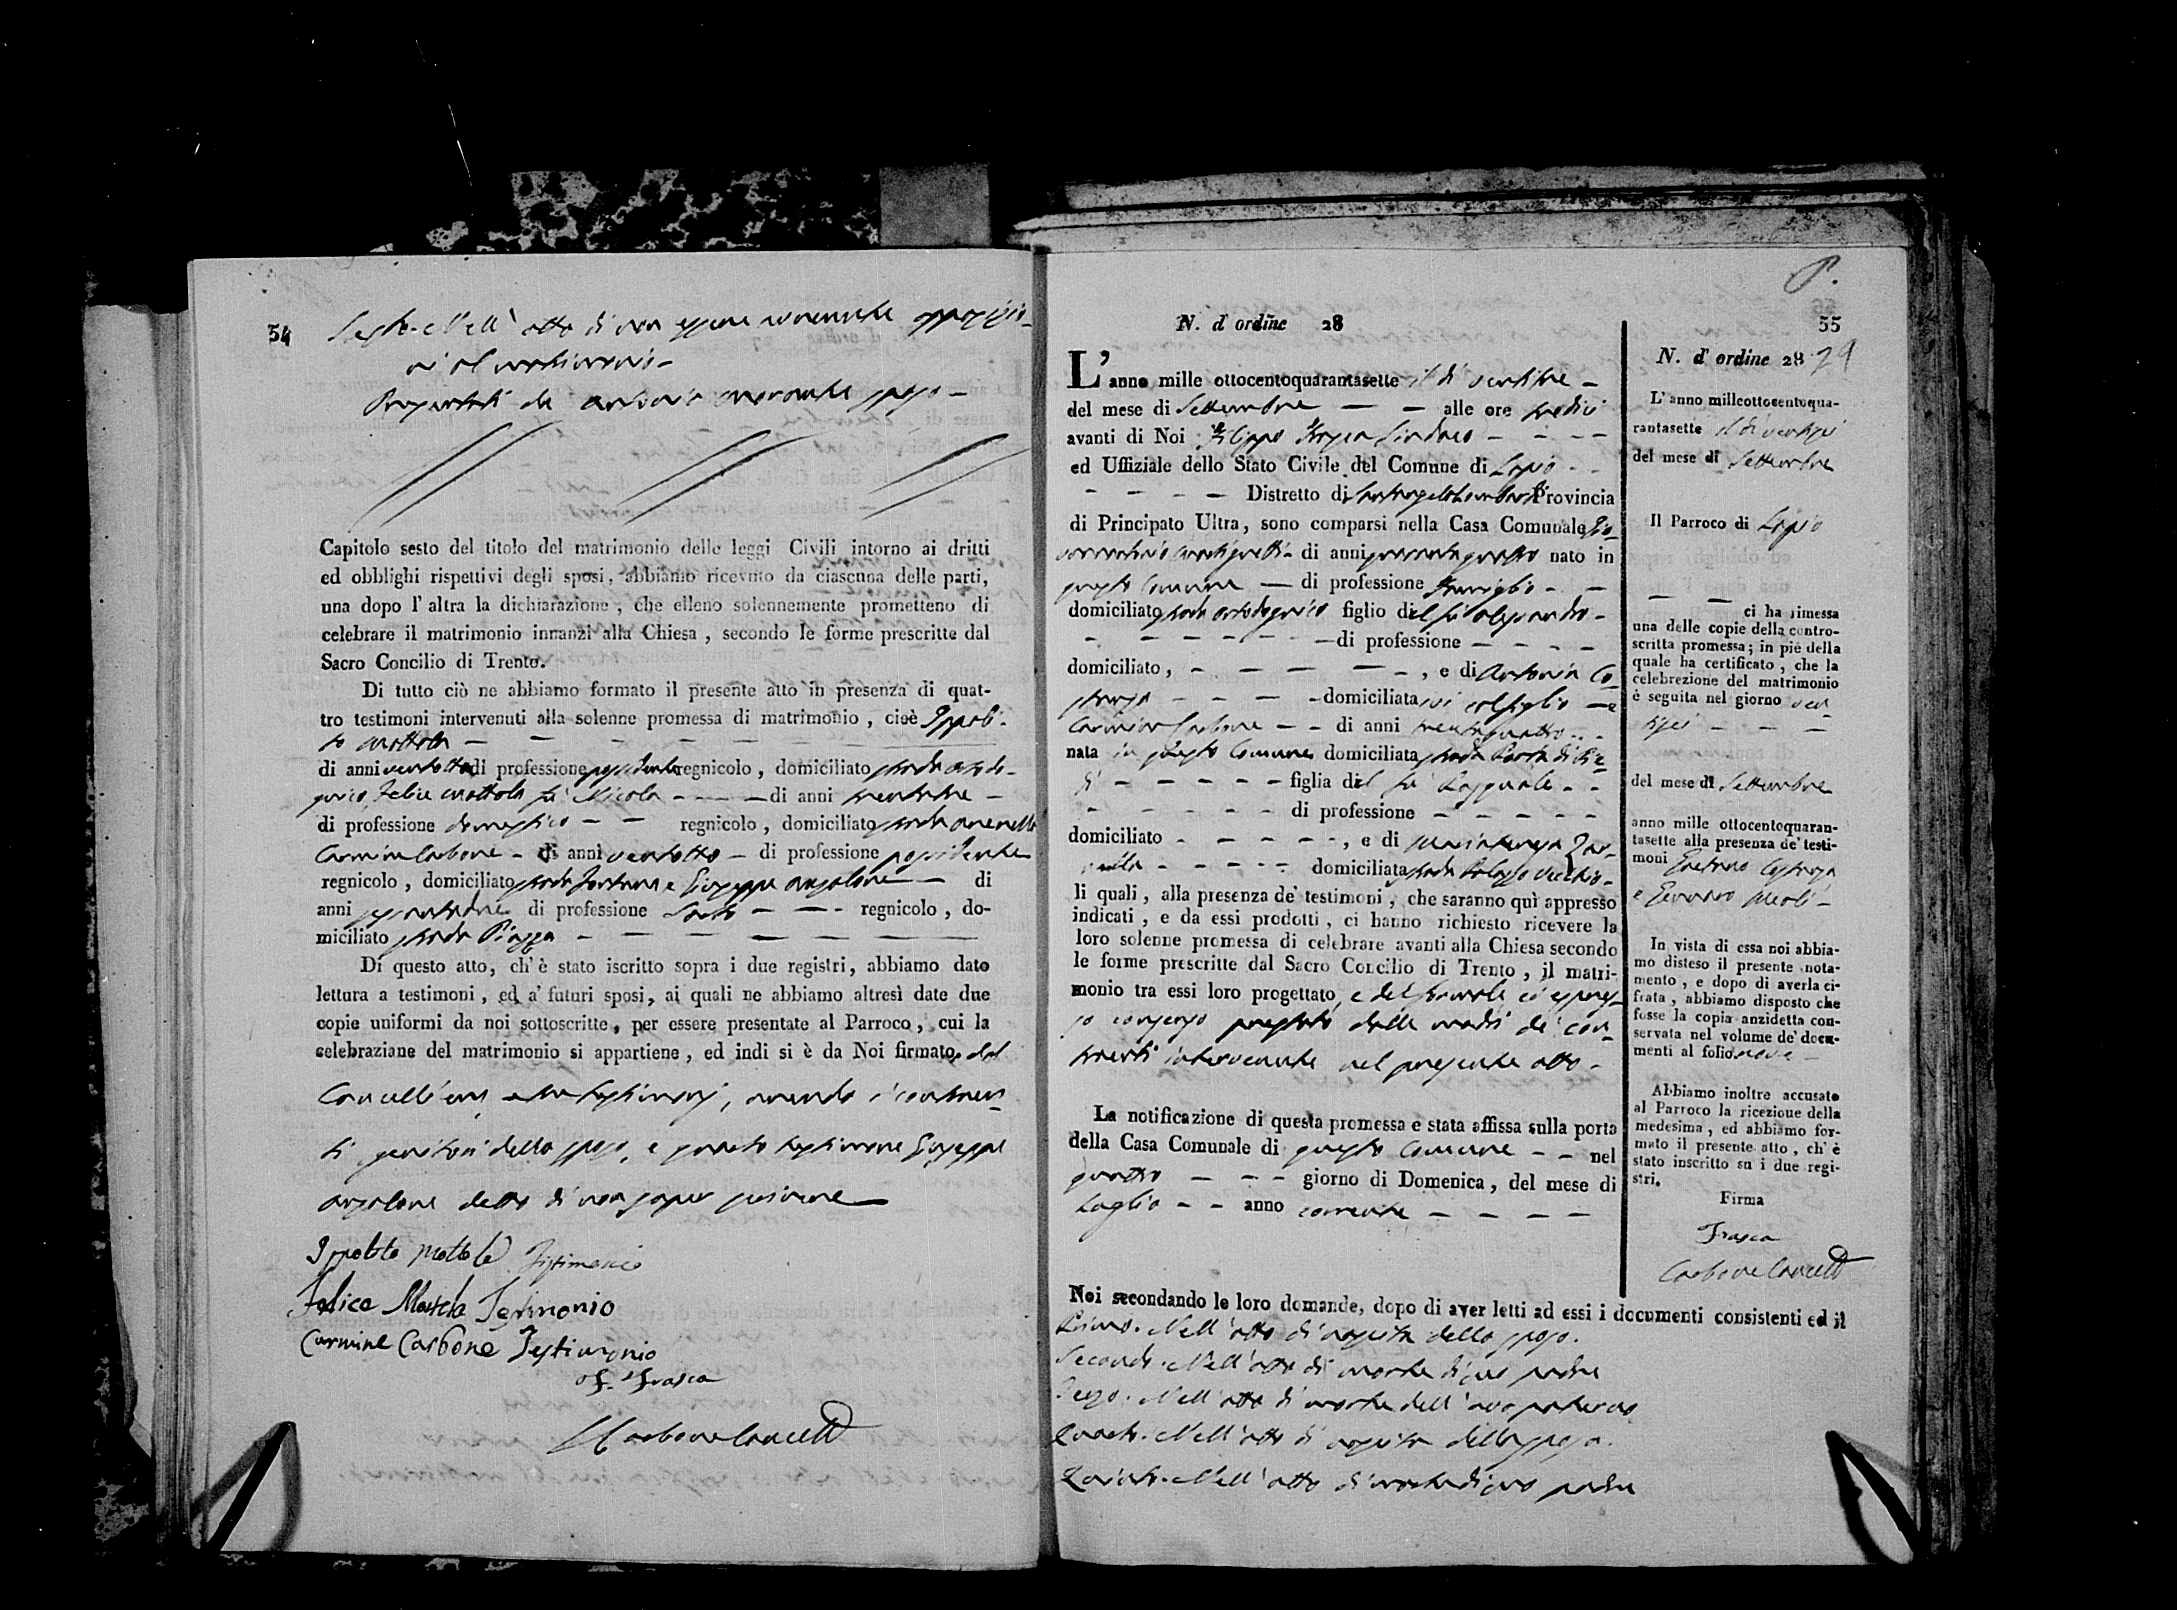 54
Sesto. Nell' atto di non essere avvenute opposizio-
ni al matrimonio -
Presentati da Antonio sposo -
Capitolo sesto del titolo del matrimonio delle leggi Civili intorno ai dritti
ed obblighi rispettivi degli sposi, abbiamo ricevuto da ciascuna delle parti,
una dopo l' altra la dichiarazione, che elleno solennemente prometteno di
celebrare il matrimonio innanzi alla Chiesa, secondo le forme prescritte dal
Sacro Concilio di Trento.
Di tutto ciò ne abbiamo formato il presente atto in presenza di quat-
tro testimoni intervenuti alla solenne promessa di matrimonio, cioè Ippoli-
to Mottola
di anni ventotto di professione possidente regnicolo, domiciliato strada
Felice Mottola fu Nicola di anni trentatre
di professione domestico regnicolo, domiciliato strada
Carmine Carbone di anni ventotto di professione possidente
regnicolo, domiciliato strada Fontana e Giuseppe Anzalone di
anni sessantatre di professione Sarto regnicolo, do-
miciliato strada Piazza
Di questo atto, ch' è stato iscritto sopra i due registri, abbiamo dato
lettura a testimoni, ed a' futuri sposi, ai quali ne abbiamo altresì date due
copie uniformi da noi sottoscritte, per essere presentate al Parroco, cui la
celebraziane del matrimonio si appartiene, ed indi si è da Noi firmato, dal
Cancelliere, e tre testimonj, avendo i contraen-
ti genitori dello sposo, e quarto testimone Giuseppe
Anzalone detto di non saper scrivere
Ippolito Mottola Testimonio
Felice Mottola Testimonio
Carmine Carbone Testimonio
F. Frasca
Carbone Cancell
55
N. d' ordine 28
L' anno mille ottocentoquarantasette il dì ventitre
del mese di Settembre alle ore tredici
avanti di Noi Filippo Frasca Sindaco
ed Uffiziale dello Stato Civile del Comune di Lapio
Distretto di Santangelo Lombardi Provincia
di Principato Ultra, sono comparsi nella Casa Comunale Gio-
di anni quarantaquattro nato in
questo Comune di professione
domiciliato strada figlio del fu Alessandro
di professione
domiciliato, , e di Antonia Ca-
domiciliata col figlio e
Carbone di anni trentaquattro
nata in questo Comune domiciliata strada
figlia del fu Pasquale
di professione
domiciliato , e di Mariateresa Zar-
rella domiciliata strada Palazzo Vecchio
li quali, alla presenza de' testimoni, che saranno quì appresso
indicati, e da essi prodotti, ci hanno richiesto ricevere la
loro solenne promessa di celebrare avanti alla Chiesa secondo
le forme prescritte dal Sacro Concilio di Trento, il matri-
monio tra essi loro progettato, e del formale ed espres-
so consenso prestato dalle madri de' con-
traenti intervenute nel presente atto
La notificazione di questa promessa e stata affissa sulla porta
della Casa Comunale di questo Comune nel
quattro giorno di Domenica, del mese di
Luglio anno corrente
Noi secondando le loro domande, dopo di aver letti ad essi i documenti consistenti ed il
Primo. Nell' atto di nascita dello sposo.
Secondo. Nell' atto di morte di suo padre
Terzo. Nell' atto di morte dell' avo paterno
Quarto. Nell' atto di nascita della sposa.
Quinto. Nell' atto di morte di suo padre
N. d' ordine 28 29
L' anno milleottocentoqua-
rantasette il dì ventisei
del mese di Settembre
Il Parroco di Lapio
ci ha rimessa
una delle copie della contro-
scritta promessa; in piè della
quale ha certificato, che la
celebrezione del matrimonio
è seguita nel giorno ven-
tisei
del mese di Settembre
anno mille ottocentoquaran-
tasette alla presenza de' testi-
moni Gaetano
e Gennaro Meoli
In vista di essa noi abbia-
mo disteso il presente nota-
mento, e dopo di averla ci-
frata, abbiamo disposto che
fosse la copia anzidetta con-
servata nel volume de' docu-
menti al folio nove
Abbiamo inoltre accusato
al Parroco la ricezione della
medesima, ed abbiamo for-
mato il presente atto, ch' è
stato inscritto su i due regi-
stri.
Firma
Frasca
Carbone Cancell